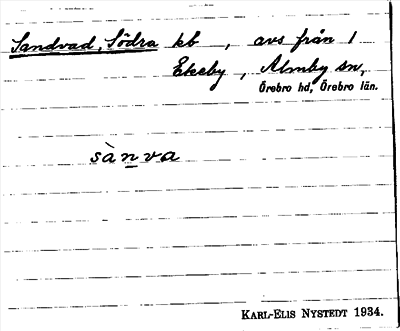 Sandvad, Södra kb , avs från 1
Ekeby , Almby sn,
Örebro hd, Örebro län.
sànva
KARL-ELIS NYSTEDT 1934.